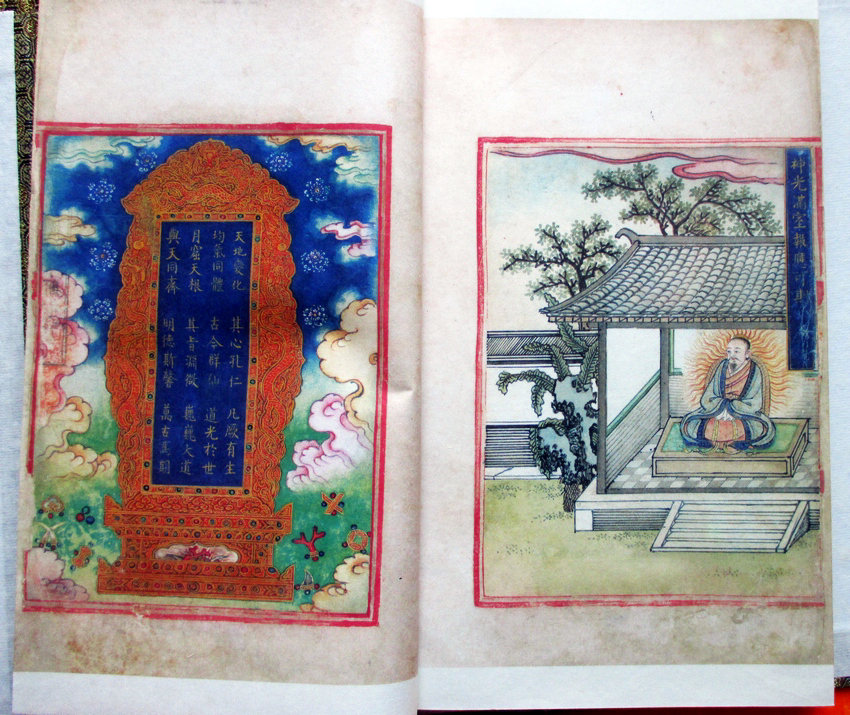 神光滿室報應可
天地變化 其心孔仁 凡厥有生
均氣同體 古今群仙 道光於世
月窟天根 其旨淵微 巍巍大道
與天同齊 明德斯馨 萬古爲